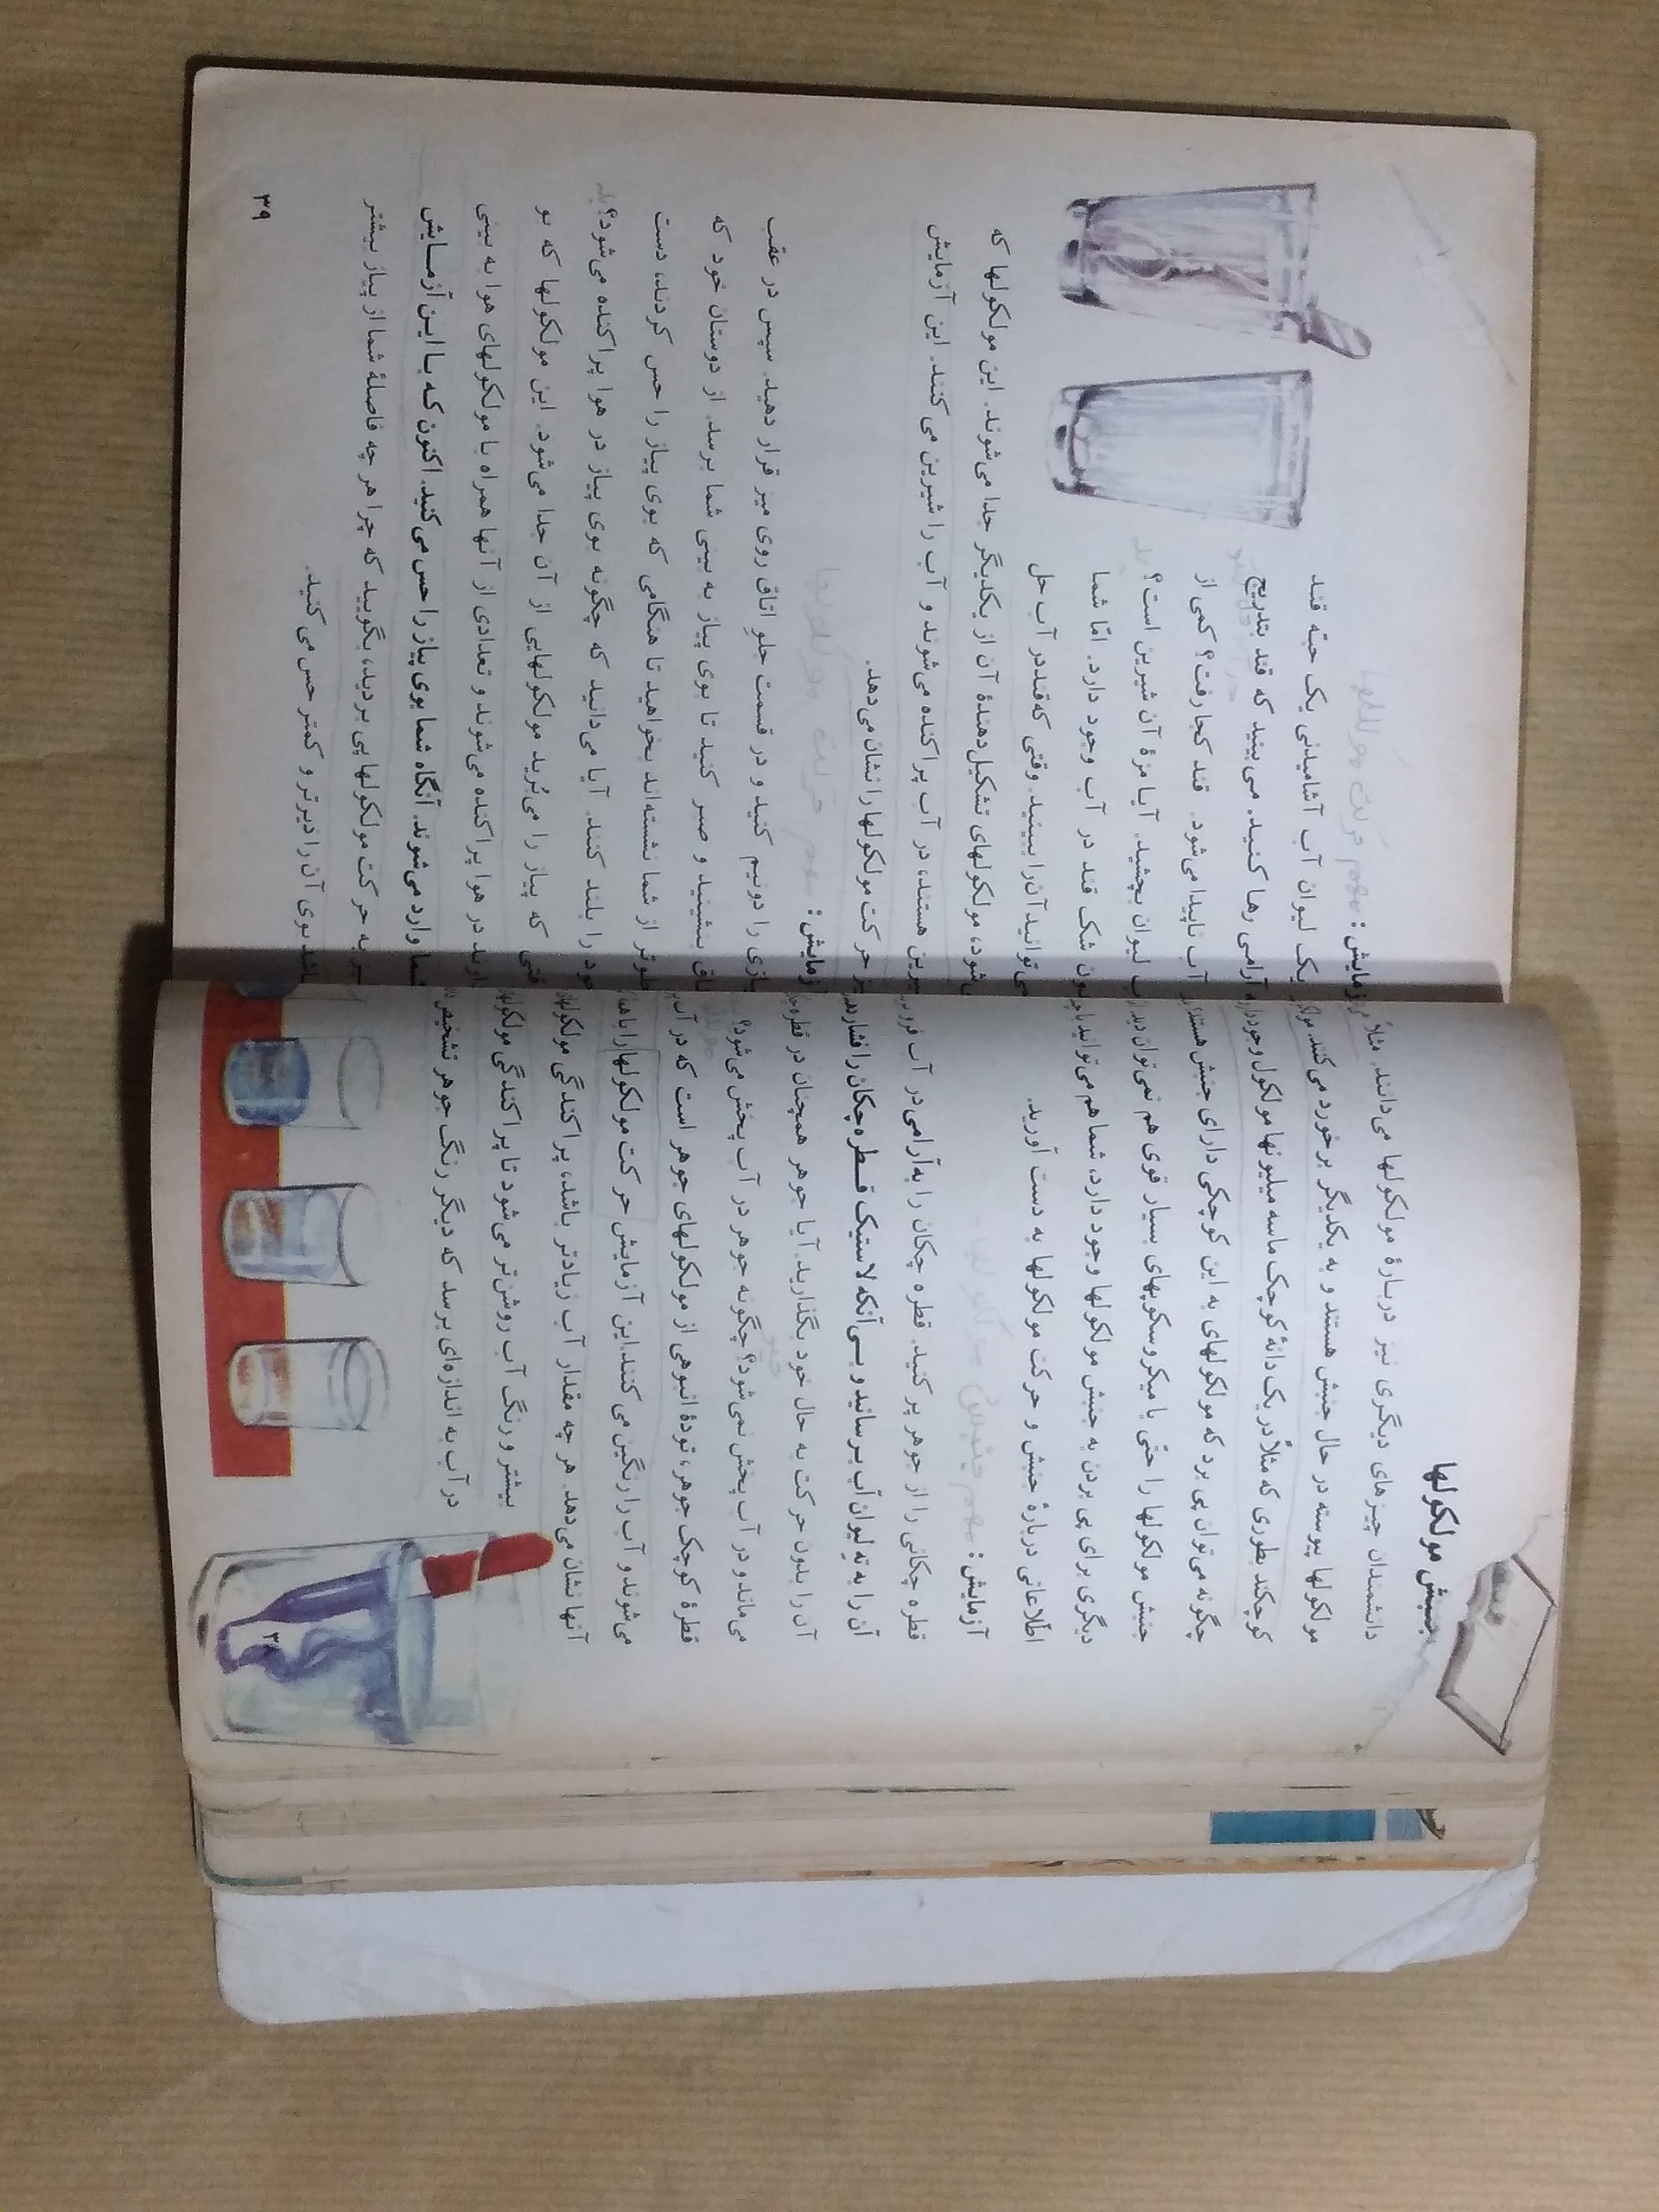 جنبش مولکولها
دانشمندان چیزهای دیگری نیز دربارهٔ مولکولها می‌دانند. مثلاً
مولکولها پیوسته در حال جنبش هستند و به یکدیگر برخورد می‌کنند.
کوچکند بطوری که مثلاً در یک دانهٔ کوچک ماسه میلیونها مولکول وجود دارد
چگونه می‌توان پی برد که مولکولهای به این کوچکی دارای جنبش هستند
جنبش مولکولها را حتّی با میکروسکوپهای بسیار قوی هم نمی‌توان دید
دیگری برای پی بردن به جنبش مولکولها وجود دارد، شما هم می‌توانید با
اطّلاعاتی دربارهٔ جنبش و حرکت مولکولها به دست آورید.
آزمایش:
قطره چکانی را از جوهر پر کنید. قطره چکان را به آرامی در آب فرو
آن را به تهِ لیوان آب برسانید و بی‌آنکه لاستیک قطره چکان را فشار دهید
آن را بدون حرکت به حال خود بگذارید. آیا جوهر همچنان در قطره
می‌ماند و در آب پخش نمی‌شود؟ چگونه جوهر در آب پخش می‌شود؟
قطرهٔ کوچک جوهر، تودهٔ انبوهی از مولکولهای جوهر است که در آب
می‌شوند و آب را رنگین می‌کنند. این آزمایش حرکت مولکولها را
آنها نشان می‌دهد. هر چه مقدار آب زیادتر باشد، پراکندگی
بیشتر و رنگ آب روشن‌تر می‌شود تا پراکندگی
در آب به اندازه‌ای برسد که دیگر رنگ جوهر تشخیص
آزمایش:
یک لیوان آب آشامیدنی یک حبّه قند
به آرامی رها کنید. می‌بینید که قند بتدریج
آب ناپیدا می‌شود. قند کجا رفت؟ کمی از
آب لیوان بچشید. آیا مزهٔ آن شیرین است؟
بدون شک قند در آب وجود دارد. امّا شما
نمی‌توانید آن را ببینید. وقتی که قند در آب حل
می‌شود، مولکولهای تشکیل‌دهندهٔ آن از یکدیگر جدا می‌شوند. این مولکولها که
شیرین هستند، در آب پراکنده می‌شوند و آب را شیرین می‌کنند. این آزمایش
نیز حرکت مولکولها را نشان می‌دهد.
آزمایش:
پیازی را دونیم کنید و در قسمت جلوِ اتاق روی میز قرار دهید. سپس در عقب
اتاق بنشینید و صبر کنید تا بوی پیاز به بینی شما برسد. از دوستان خود که
جلوتر از شما نشسته‌اند بخواهید تا هنگامی که بوی پیاز را حس کردند، دست
خود را بلند کنند. آیا می‌دانید که چگونه بوی پیاز در هوا پراکنده می‌شود؟
وقتی که پیاز را می‌بُرید مولکولهایی از آن جدا می‌شود. این مولکولها که بو
دارند در هوا پراکنده می‌شوند و تعدادی از آنها همراه با مولکولهای هوا به بینی
شما وارد می‌شوند. آنگاه شما بوی پیاز را حس می‌کنید. اکنون که با این آزمایش
نیز به حرکت مولکولها پی بردید، بگویید که چرا هر چه فاصلهٔ شما از پیاز بیشتر
باشد بوی آن را دیرتر و کمتر حس می‌کنید.
۳۹